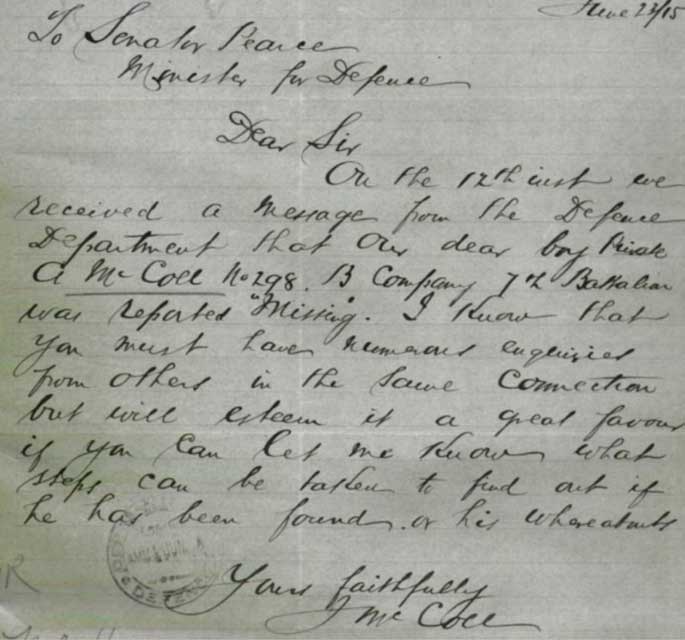 June 23/15
To Senator Pearce
Minister for Defence
Dear Sir
On the 12th inst we
received a message from the Defence
Department that our dear boy Private
A McColl No 298. B Company 7th Battalion
was reported "Missing". I know that
you must have numerous enquiries
from others in the same connection
but will esteem it a great favour
if you can let me know what
steps can be taken to find out if
he has been found or his whereabouts
Yours faithfully
J McColl